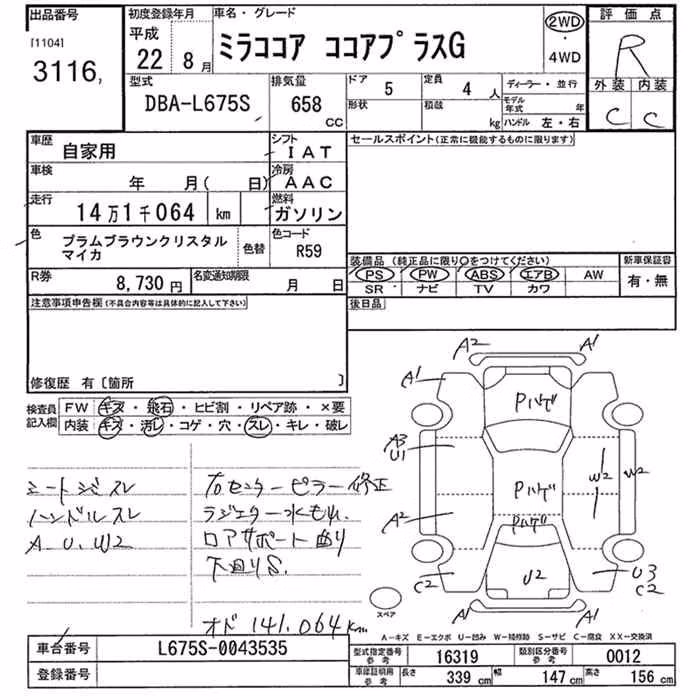 出品番号
[1104]
3116,
初度登録年月
平成
22年 8月
車名・グレード
ミラココア ココアプラスG
2WD
・
4WD
評価点
R
外装 内装
C C
型式
DBA-L675S
排気量
658 CC
ドア 5
定員 4人
形状
積載 kg
ディーラー・並行
モデル年式 年
ハンドル 左・右
車歴
自家用
シフト
IAT
車検
年 月( 日)
冷房
AAC
走行
14万1千064 km
燃料
ガソリン
色
プラムブラウンクリスタル
マイカ
色替
色コード
R59
R券
8,730円
名変通知期限
月 日
セールスポイント(正常に機能するものに限ります)
装備品(純正品に限り○をつけてください)
PS PW ABS エアB AW
SR ナビ TV カワ
新車保証書
有・無
後日品
注意事項申告欄(不具合内容等は具体的に記入して下さい)
修復歴 有〔箇所 〕
検査員記入欄
FW キズ・飛石・ヒビ割・リペア跡・×要
内装 キズ・汚レ・コゲ・穴・スレ・キレ・破レ
シートジミスレ
ハンドルスレ
A.U.W2
右センターピラー修正
ラジエター水もれ
ロアサポート曲り
下廻りS.
オド 141.064km
A2 A1
A1
Pハゲ
A3
U1
Pハゲ
W2 W2
A2
Pハゲ
U2
C2
U3
C2
A1 A1
スペア
A-キズ E-エクボ U-凹み W-補修跡 S-サビ C-腐食 XX-交換済
車台番号
L675S-0043535
登録番号
型式指定番号
参考
16319
類別区分番号
参考
0012
車庫証明用
参考
長さ 339cm
幅 147cm
高さ 156cm